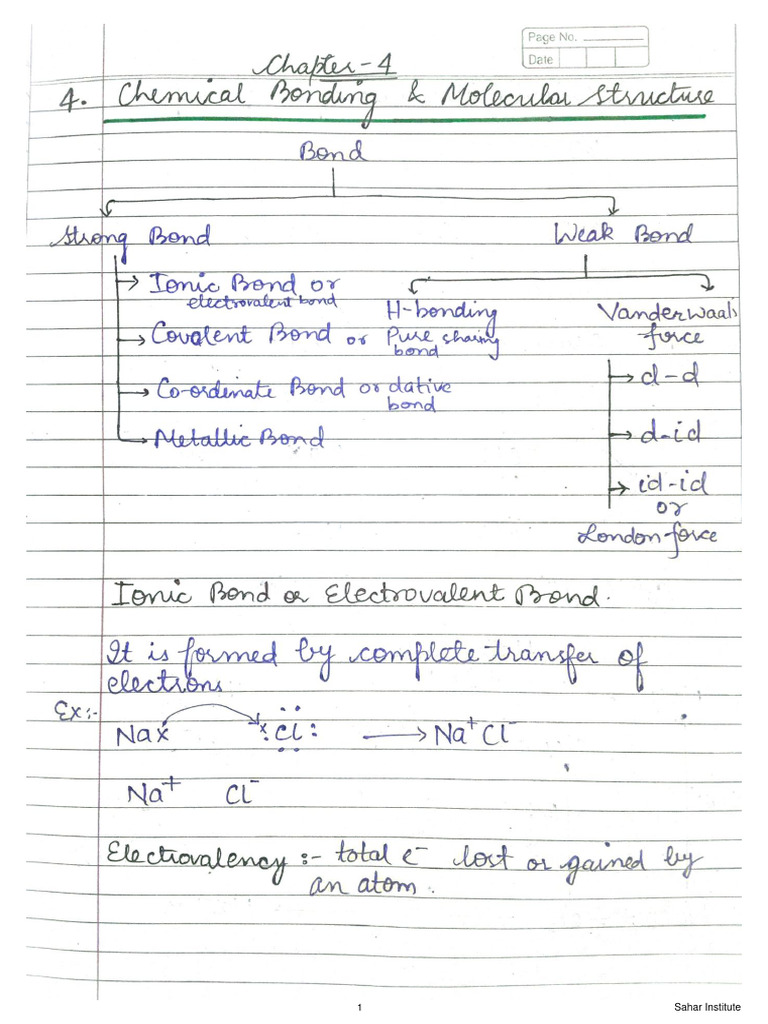 Page No.
Date
Chapter-4
4. Chemical Bonding & Molecular Structure
Bond
Strong Bond
Weak Bond
Ionic Bond or
electrovalent bond
Covalent Bond or Pure sharing
bond
Co-ordinate Bond or dative
bond
Metallic Bond
H-bonding
Vanderwaal's
force
d-d
d-id
id-id
or
London force
Ionic Bond or Electrovalent Bond.
It is formed by complete transfer of
electrons
Ex:-
Nax x:Cl: → Na⁺Cl⁻
Na⁺ Cl⁻
Electrovalency :- total e⁻ lost or gained by
an atom.
1
Sahar Institute